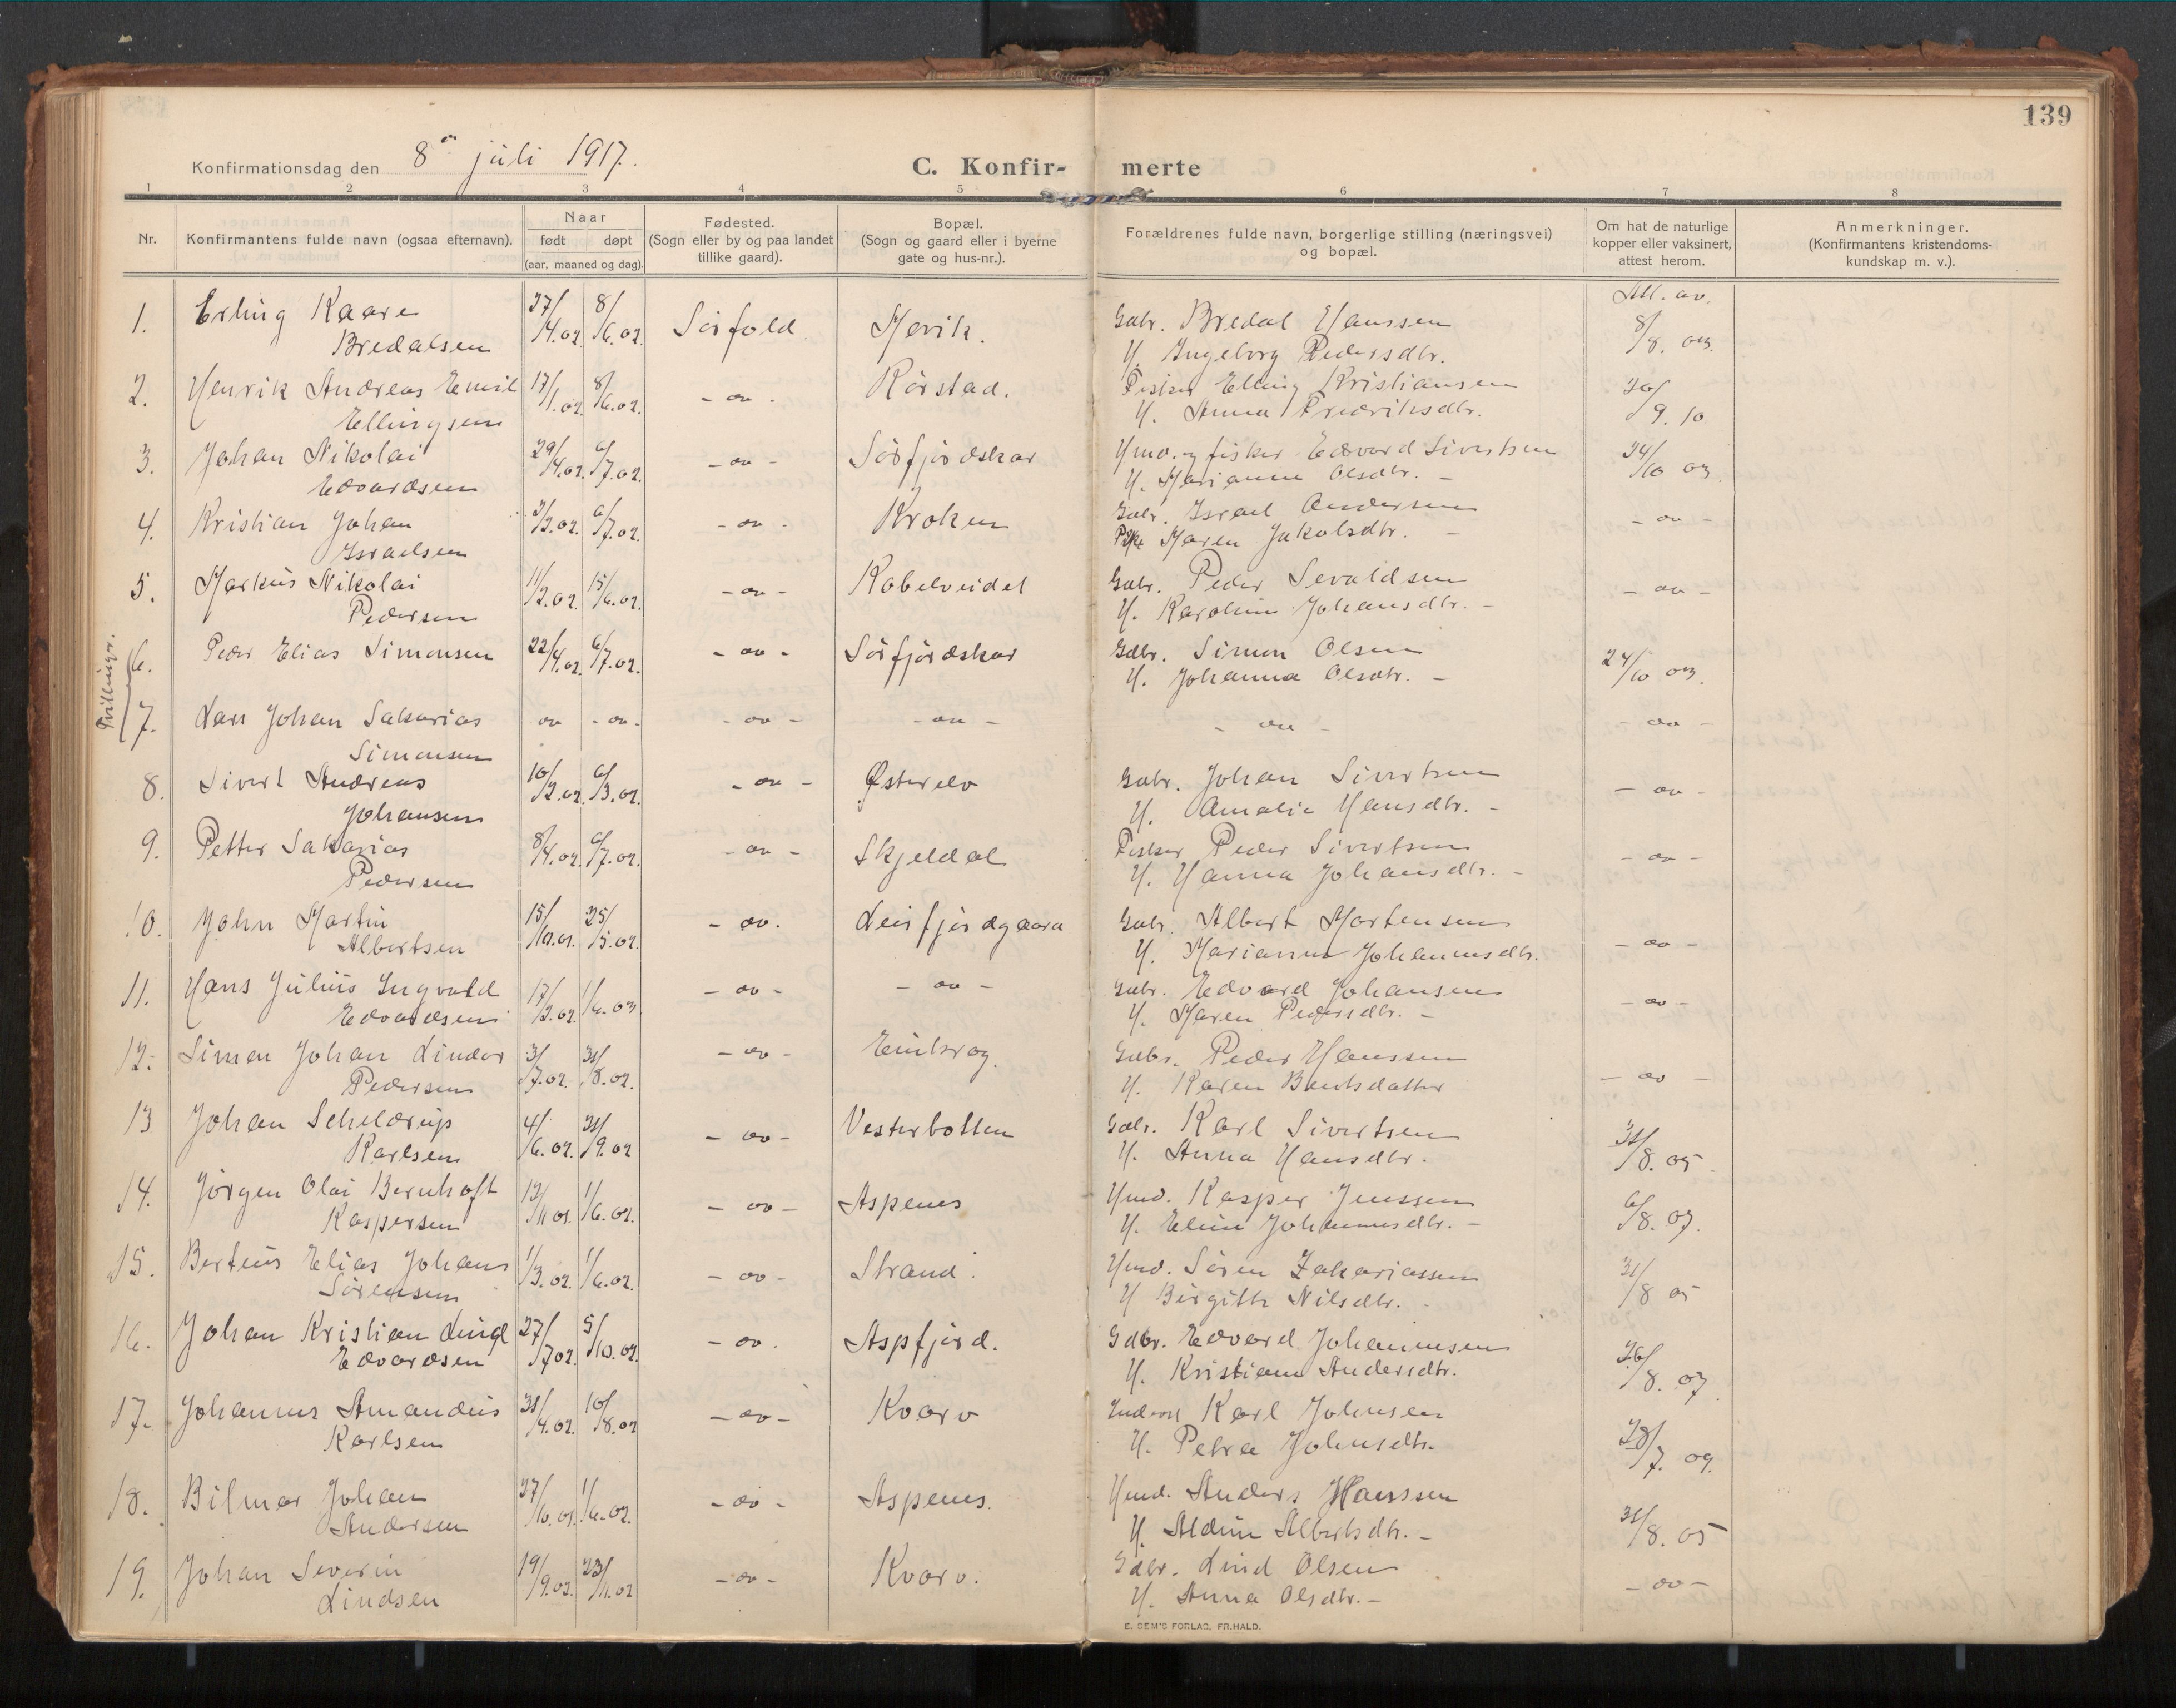 139
Konfirmationsdag den 8de juli 1917.
C. Konfir- merte
1 2 3 4 5 6 7 8
Nr.
Konfirmantens fulde navn (ogsaa efternavn).
Naar
født døpt
(aar, maaned og dag).
Fødested.
(Sogn eller by og paa landet
tillike gaard).
Bopæl.
(Sogn og gaard eller i byerne
gate og hus-nr.).
Forældrenes fulde navn, borgerlige stilling (næringsvei)
og bopæl.
Om hat de naturlige
kopper eller vaksinert,
attest herom.
Anmerkninger.
(Konfirmantens kristendoms-
kundskap m. v.).
1. Erling Kaare 27/4.02. 8/6.02. Sørfold Mørvik. Gbr. Bredal Hanssen Att. av. 8/8. 03.
Bredalsen H. Ingeborg Pedersdtr.
2. Henrik Andreas Emil 17/1.02. 8/6.02. - " - Rørstad. Fisker Elling Kristiansen 30/9. 10
Ellingsen H. Anna Fredriksdtr.
3. Johan Nikolai 29/4.02. 6/7.02. - " - Sørfjordskar Hmd. og fisker Edvard Sivertsen 24/10 03.
Edvardsen H. Marianne Olsdtr. -
4. Kristian Johan 3/3.02. 6/7.02. - " - Kroken Gbr. Israel Andersen - " -
Israelsen Maren Jakobsdtr. -
5. Markus Nikolai 11/2.02. 15/6.02. - " - Kobelveidet Gbr. Peder Sevaldsen - " -
Pedersen H. Karoline Johansdtr. -
Tvillinger.
6. Peder Elias Simonsen 22/4.02. 6/7.02. - " - Sørfjordskar Gdbr. Simon Olsen 24/10 03.
H. Johanna Olsdtr. -
7. Lars Johan Sakarias " - " - - " - - " - - " - - " -
Simonsen
8. Sivert Andreas 10/2.02. 6/3.02. - " - Østerelv Gdbr. Johan Sivertsen - " -
Johansen H. Amalie Hansdtr. -
9. Petter Sakarias 8/4.02. 6/7.02. - " - Skjeldal Fisker Peder Sivertsen - " -
Pedersen H. Hanna Johansdtr. -
10. John Martin 15/10.01. 25/5.02. - " - Leirfjordgaard Gbr. Albert Mortensen - " -
Albertsen H. Marianne Johannesdtr.
11. Hans Julius Ingvald 17/3.02. 1/6.02. - " - - " - Gdbr. Edvard Johansen - " -
Edvardsen H. Maren Pedersdtr. -
12. Simon Johan Lindor 3/7.02. 31/8.02. - " - Gdbr. Peder Hanssen - " -
Pedersen H. Karen Bentsdatter
13 Johan Scheldrup 4/6.02. 31/9.02 - " - Vesterbotten Gdbr. Karl Sivertsen 31/8. 05.
Karlsen H. Anna Hansdtr.
14. Jørgen Olai Bernhoft 13/11 01. 1/6.02. - " - Aspenes Hmd. Kasper Jenssen 6/8. 07.
Kaspersen H. Eline Johannesdtr. -
15. Berteus Elias Johans 1/3.02. 1/6.02. - " - Strand. Hmd. Søren Zakariassen 31/8 05
Sørensen H Birgitte Nilsdtr. -
16. Johan Kristian Lingl 27/7 02. 5/10.02. - " - Aspfjord. Gdbr. Edvard Johannesen 26/8. 07.
Edvardsen H. Kristiane Andersdtr.
17. Johannes Amandus 31/4.02. 10/8.02 - " - Kvarv Karl Johnsen 28/7. 09.
Karlsen H. Petra Johnsdtr.
18. Bilmar Johan 27/10.01. 1/6.02. - " - Aspenes. Hmd. Anders Hanssen 31/8. 05
Andersen H. Aldine Albertsdtr. -
19. Johan Severin 19/9.02. 23/11.02 - " - Kvarv. Gdbr. Lind Olsen - " -
Lindsen H. Anna Olsdtr. -
E. SEM'S FORLAG, FR.HALD.